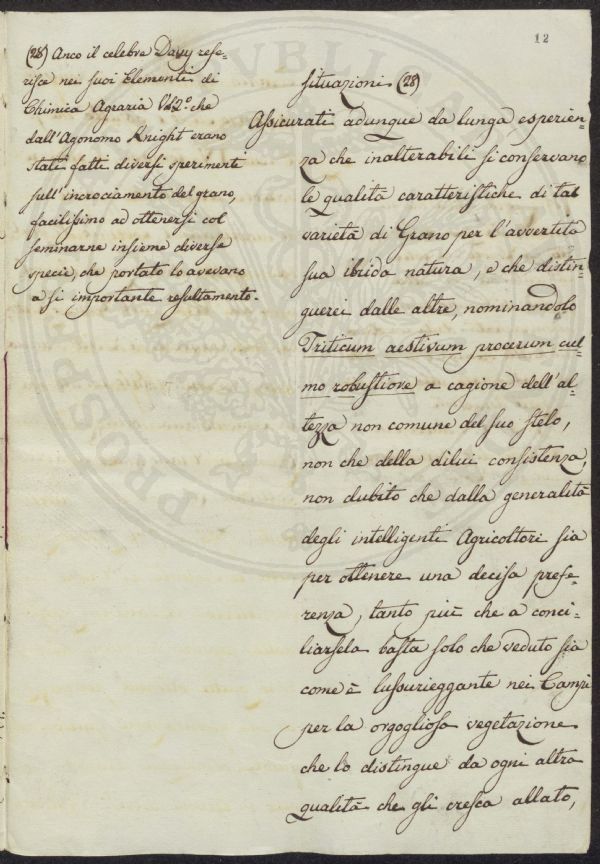 12
(28) Anco il celebre Davy refe=
risce nei suoi Elementi di
Chimica Agraria Vol. 2º. che
dall'Agonomo Knight erano
stati fatti diversi sperimenti
sull'incrociamento del grano,
facilissimo ad ottenersi col
seminarne insieme diverse
specie, che portato lo avevano
a si importante resultamento.
situazioni (28)
Assicurati adunque da lunga esperien=
za che inalterabili si conservano
le qualità caratteristiche di tal
varietà di Grano per l'avvertita
sua ibrida natura, e che distin=
guerei dalle altre, nominandolo
Triticum aestivum procerum cul=
mo robustiore a cagione dell'al=
tezza non comune del suo stelo,
non che della dilui consistenza,
non dubito che dalla generalità
degli intelligenti Agricoltori sia
per ottenere una decisa prefe=
renza, tanto più che a conci=
liarsela basta solo che veduto sia
come è lussurieggante nei Campi
per la orgogliosa vegetazione
che lo distingue da ogni altra
qualità che gli cresca allato,